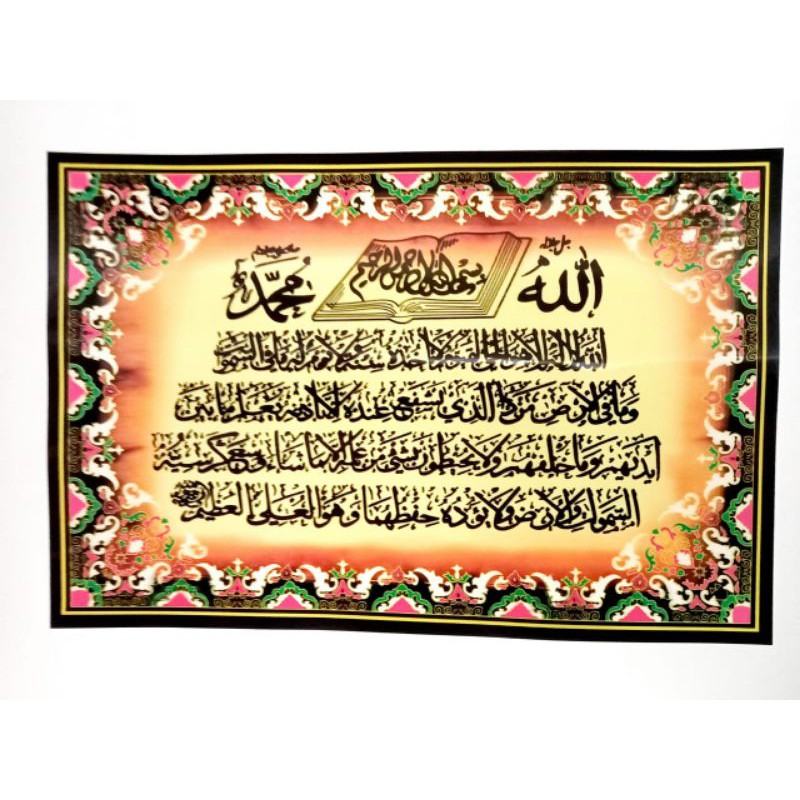 الله جل جلاله
بسم الله الرحمن الرحيم
محمد
الله لا اله الا هو الحي القيوم لا تأخذه سنة ولا نوم له ما في السموات
وما في الارض من ذا الذي يشفع عنده الا باذنه يعلم ما بين
ايديهم وما خلفهم ولا يحيطون بشيء من علمه الا بما شاء وسع كرسيه
السموات والارض ولا يؤده حفظهما وهو العلي العظيم